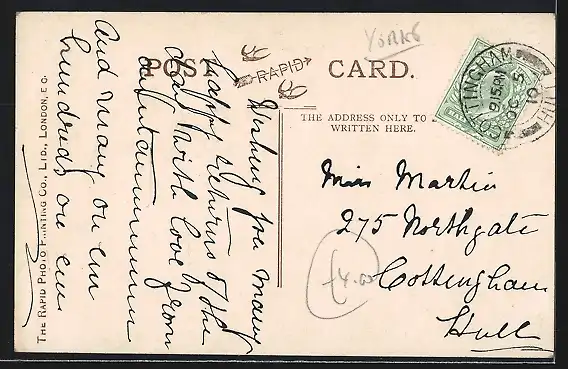 YORKS
POST CARD.
RAPID
THE ADDRESS ONLY TO
WRITTEN HERE.
COTTINGHAM
HULL
9.15 AM
OC 5
10
Wishing you many
happy returns of the
day with love from
And many on em
hundreds on em
Miss Martin
275 Northgate
Cottingham
Hull
£4.00
THE RAPID PHOTO PRINTING CO., LTD., LONDON, E.C.